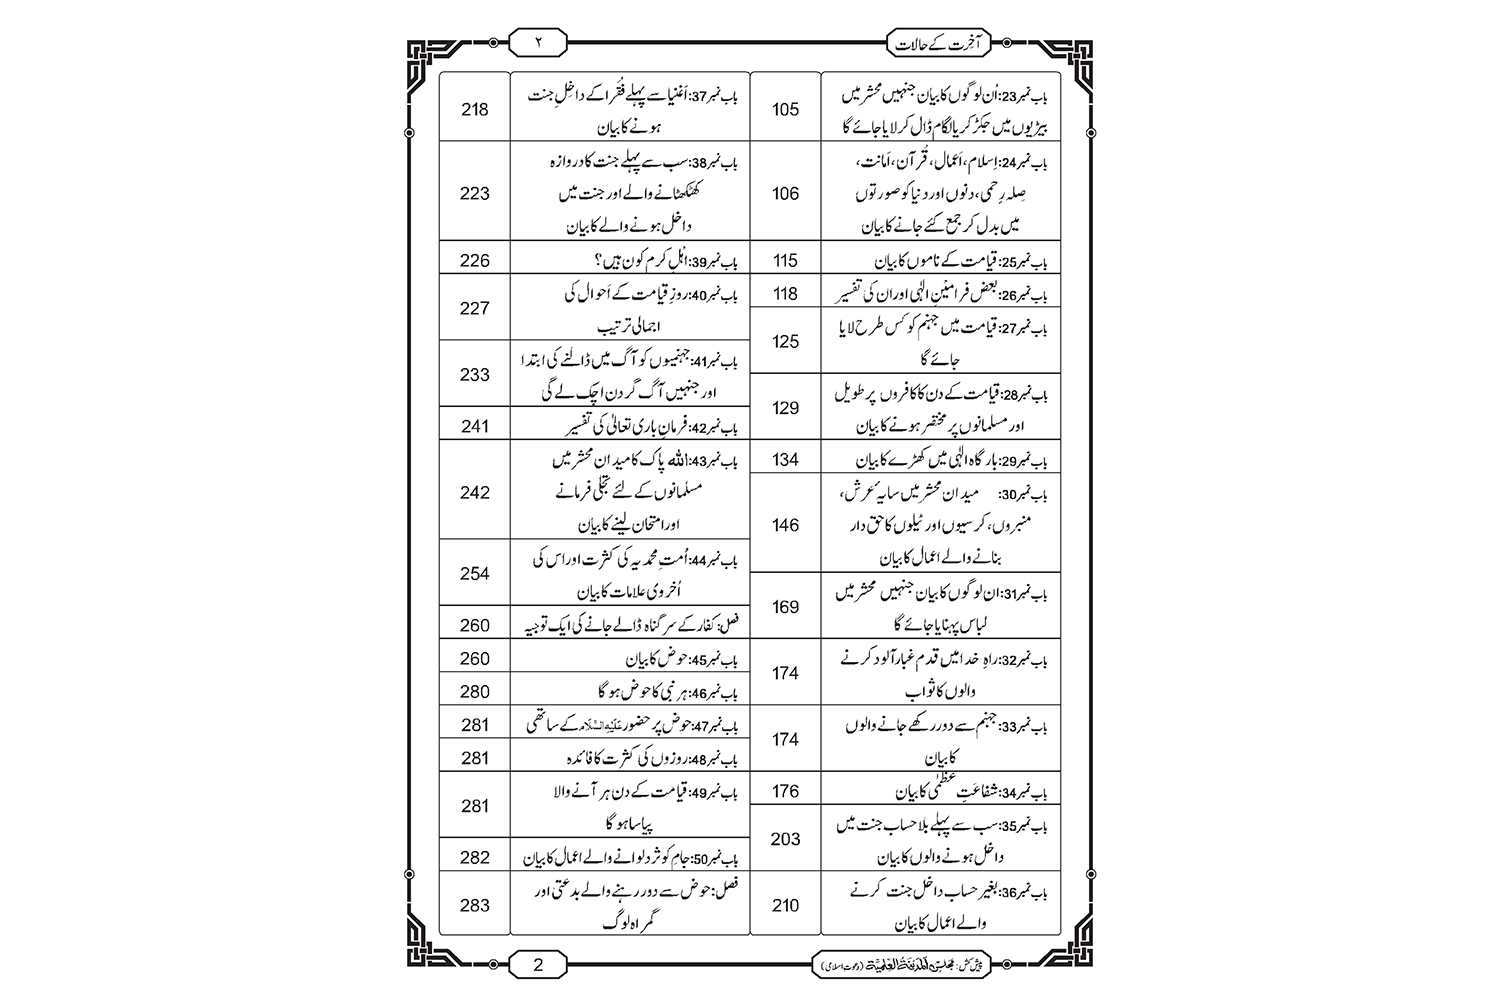 آخِرت کے حالات
۲
باب نمبر23: اُن لوگوں کا بیان جنہیں محشر میں
بیڑیوں میں جکڑ کر یا لگام ڈال کر لایا جائے گا
105
باب نمبر24: اِسلام، اَعمال، قُرآن، اَمانت،
صِلہ رِحمی، دنوں اور دنیا کو صورتوں
میں بدل کر جمع کئے جانے کا بیان
106
باب نمبر25: قیامت کے ناموں کا بیان
115
باب نمبر26: بعض فرامینِ الٰہی اور ان کی تفسیر
118
باب نمبر27: قیامت میں جہنم کو کس طرح لایا
جائے گا
125
باب نمبر28: قیامت کے دن کا کافروں پر طویل
اور مسلمانوں پر مختصر ہونے کا بیان
129
باب نمبر29: بارگاہ الٰہی میں کھڑے کا بیان
134
باب نمبر30: میدان محشر میں سایۂ عرش،
منبروں، کرسیوں اور ٹیلوں کا حق دار
بنانے والے اعمال کا بیان
146
باب نمبر31: ان لوگوں کا بیان جنہیں محشر میں
لباس پہنایا جائے گا
169
باب نمبر32: راہِ خدا میں قدم غبار آلود کرنے
والوں کا ثواب
174
باب نمبر33: جہنم سے دور رکھے جانے والوں
کا بیان
174
باب نمبر34: شفاعَتِ عظمٰی کا بیان
176
باب نمبر35: سب سے پہلے بلا حساب جنت میں
داخل ہونے والوں کا بیان
203
باب نمبر36: بغیر حساب داخل جنت کرنے
والے اعمال کا بیان
210
باب نمبر37: اَغنیا سے پہلے فُقَرا کے داخلِ جنت
ہونے کا بیان
218
باب نمبر38: سب سے پہلے جنت کا دروازہ
کھٹکھٹانے والے اور جنت میں
داخل ہونے والے کا بیان
223
باب نمبر39: اہْلِ کرم کون ہیں؟
226
باب نمبر40: روزِ قیامت کے اَحوال کی
اجمالی ترتیب
227
باب نمبر41: جہنمیوں کو آگ میں ڈالنے کی ابتدا
اور جنہیں آگ گردن اچک لے گی
233
باب نمبر42: فرمان باری تعالیٰ کی تفسیر
241
باب نمبر43: اللہ پاک کا میدان محشر میں
مسلمانوں کے لئے تجلّی فرمانے
اور امتحان لینے کا بیان
242
باب نمبر44: اُمتِ محمدیہ کی کثرت اور اس کی
اُخروی علامات کا بیان
254
فصل: کفار کے سر گناہ ڈالے جانے کی ایک توجیہ
260
باب نمبر45: حوض کا بیان
260
باب نمبر46: ہر نبی کا حوض ہو گا
280
باب نمبر47: حوض پر حضور عَلَیْہِ السَّلَام کے ساتھی
281
باب نمبر48: روزوں کی کثرت کا فائدہ
281
باب نمبر49: قیامت کے دن ہر آنے والا
پیاسا ہو گا
281
باب نمبر50: جامِ کوثر دلوانے والے اعمال کا بیان
282
فصل: حوض سے دور رہنے والے بدعتی اور
گمراہ لوگ
283
پیش کش: مجلس المدینۃ العلمیۃ (دعوت اسلامی)
2